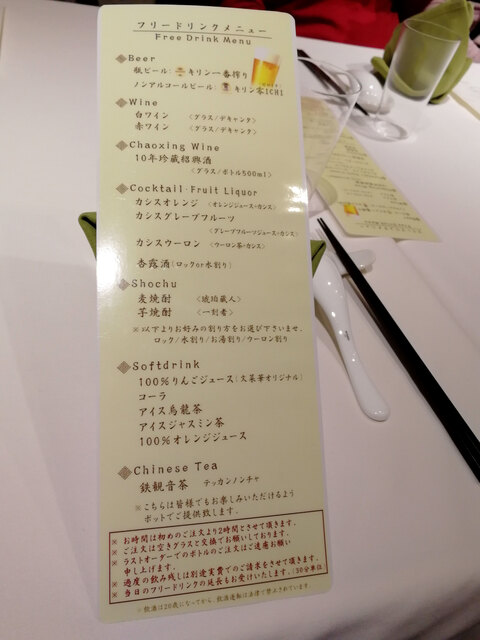 フリードリンクメニュー
Free Drink Menu
Beer
瓶ビール: キリン一番搾り
ノンアルコールビール: キリン零ICHI
Wine
白ワイン <グラス/デキャンタ>
赤ワイン <グラス/デキャンタ>
Chaoxing Wine
10年珍蔵紹興酒
<グラス/ボトル500ml>
Cocktail・Fruit Liquor
カシスオレンジ <オレンジジュース+カシス>
カシスグレープフルーツ
<グレープフルーツジュース+カシス>
カシスウーロン <ウーロン茶+カシス>
杏露酒(ロックor水割り)
Shochu
麦焼酎 <琥珀蔵人>
芋焼酎 <一刻者>
※以下よりお好みの割り方をお選び下さいませ。
ロック/水割り/お湯割り/ウーロン割り
Softdrink
100%りんごジュース(文菜華オリジナル)
コーラ
アイス烏龍茶
アイスジャスミン茶
100%オレンジジュース
Chinese Tea
鉄観音茶 テッカンノンチャ
※こちらは皆様でもお楽しみいただけるよう
ポットでご提供致します。
※ お時間は初めのご注文より2時間とさせて頂きます。
※ ご注文は空きグラスと交換でお願いしております。
※ ラストオーダーでのボトルのご注文はご遠慮お願い
申し上げます。
※ 過度の飲み残しは別途実費でのご請求をさせて頂きます。
※ 当日のフリードリンクの延長もお受けいたします。(30分単位
※飲酒は20歳になってから。飲酒運転は法律で禁止されています。